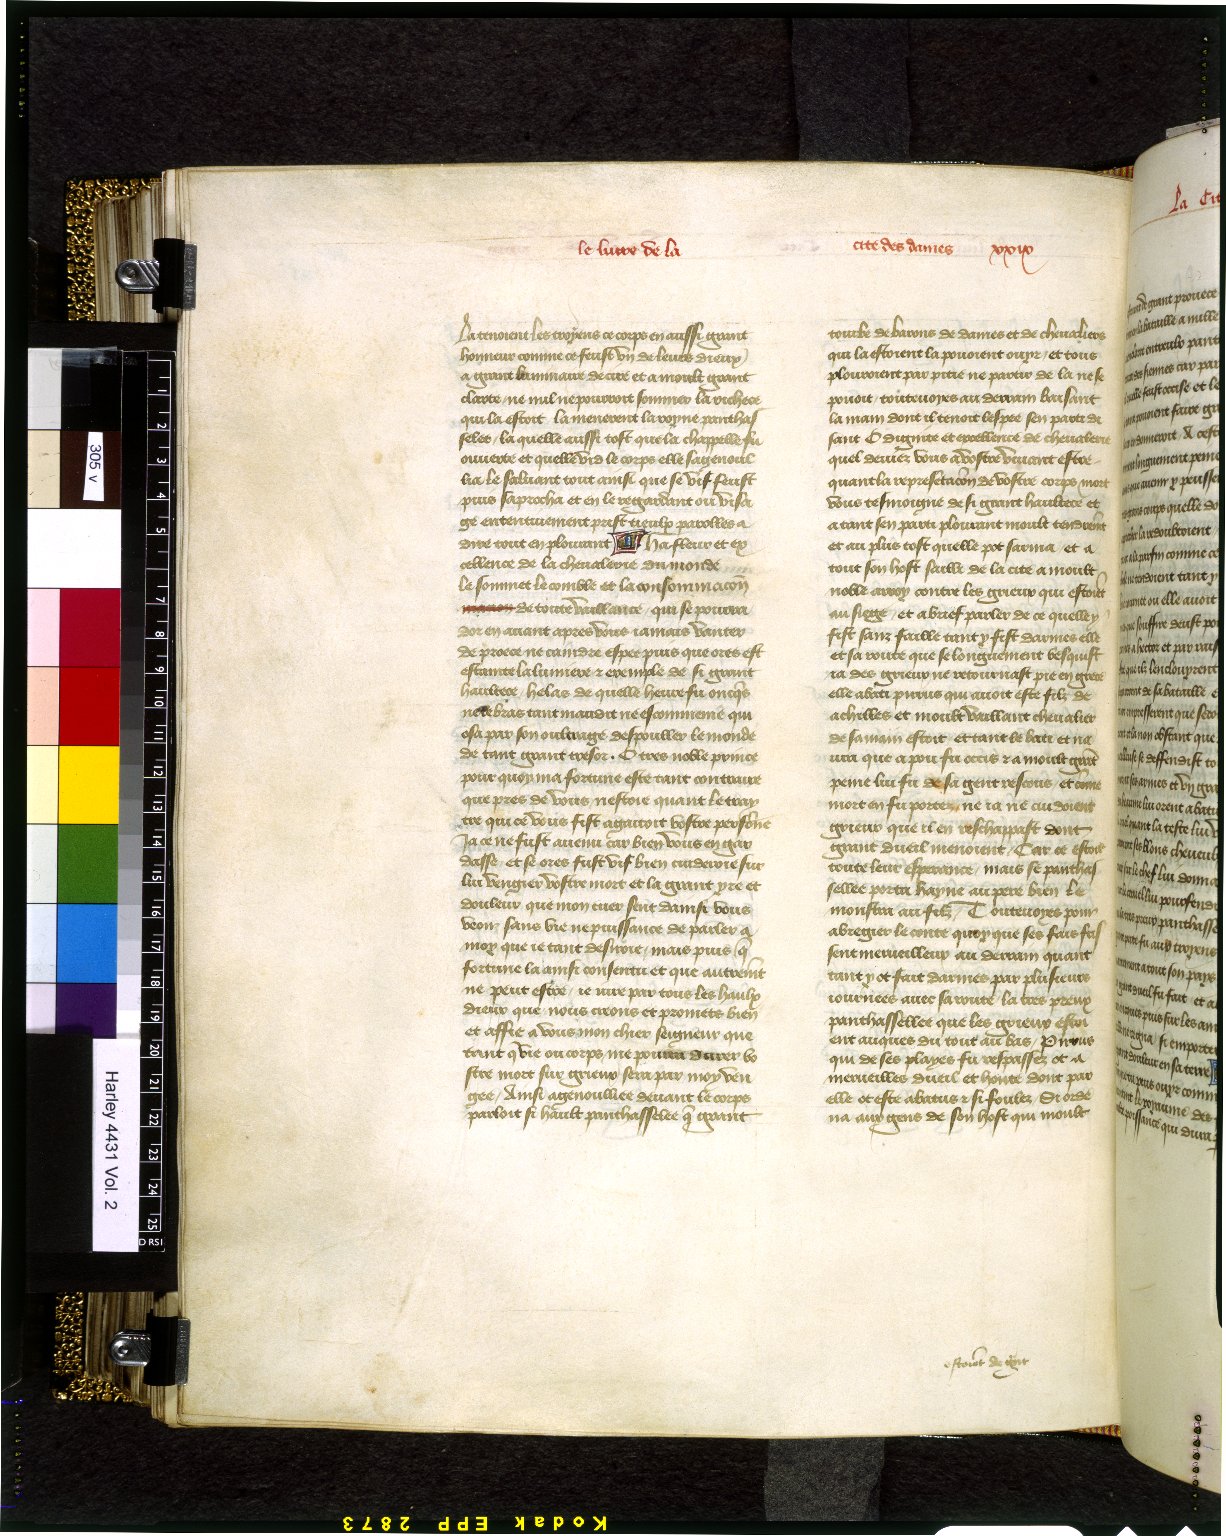 le livre de la
cite des dames xxix
La tenoient les troyens ce corps en aussi grant
honneur comme ce feust un de leurs dieux
a grant luminaire de cire et a moult grant
clarte, ne nul ne pourroit sommer la richece
qui la estoit la menerent la royne panthas
selee, la quelle aussi tost que la chappelle fu
ouverte et quelle vid le corps elle sagenoul
lia le saluant tout ainsi que se vif feust
puis saprocha et en le regardant ou visa
ge ententivement prist tieulx parolles a
dire tout en plourant Ha fleur et ex
cellence de la chevalerie du monde
le sommet le comble et la consommacon
de toute vaillance, qui se pourra
dor en avant apres vous iamais vanter
de proece ne caindre espee puis que ores est
estainte la lumiere et exemple de si grant
haultece, helas de quelle heure fu oncqs
ne le bras tant maudit ne escommenie qui
osa par son oultrage despouller le monde
de tant grant tresor. O tres noble prince
pour quoy ma fortune este tant contraire
que pres de vous nestoie quant le tray
tre qui ce vous fist agaitoit vostre personne
Ja ce ne fust avenu car bien vous en gar
dasse, et se ores fust vif bien cuideroie sur
lui vengier vostre mort et la grant yre et
douleur que mon cuer sent dainsi vous
veoir sans vie ne puissance de parler a
moy que ie tant desiroie, mais puis q
fortune la ainsi consentu et que autremt
ne peut estre, ie iure par tous les haulx
dieux que nous creons et promets bien
et affie a vous mon chier seigneur que
tant q vie ou corps me pourra durer vo
stre mort sur grieux sera par moy ven
gee, Ainsi agenoulliee devant le corps
parloit si hault panthasselee q grant
tourbe de barons de dames et de chevaliers
qui la estoient la pouoient ouyr, et tous
plouroient par pitie ne partir de la ne se
pouoit, toutevoyes au derrain baisant
la main dont il tenoit lespee sen parti di
sant O dignite et excellence de chevalerie
quel deviez vous a vostre vivant estre
quant la representacon de vostre corps mort
vous tesmoigne de si grant haultece et
a tant sen parti plourant moult tendremt
et au plus tost quelle pot sarma, et a
tout son host sailli de la cite a moult
noble arroy contre les grieux qui estoiet
au siege, et a brief parler de ce quelle y
fist sanz faille tant y fist darmes elle
et sa route que se longuement vesquist
ia des grieux ne retournast pie en grece
elle abati pirrus qui avoit este filz de
achilles et moult vaillant chevalier
de sa main estoit et tant le bati et na
vra que a pou fu occis et a moult grant
peine lui fu de sa gent rescous, et come
mort en fu portez, ne ia ne cuidoient
grieux que il en reschappast dont
grant dueil menoient, Car ce estoit
toute leur esperance, mais se panthas
sellee porta hayne au pere bien le
monstra au filz, Toutevoyes pour
abregier le conte quoy que ses fais fus
sent merveilleux au derrain quant
tant y ot fait darmes par plusieurs
iournees avec sa route la tres preux
panthassellee que les grieux estoi
ent auques du tout au bas, Pirrus
qui de ses playes fu respassez ot a
merveilles dueil et honte dont par
elle ot este abatus et si foulez, Si orde
na aux gens de son host qui moult
estoiet de grat
305 v
Harley 4431 Vol. 2
1
2
3
4
5
6
7
8
9
10
11
12
13
14
15
16
17
18
19
20
21
22
23
24
25
Kodak EPP 2873
La Cit